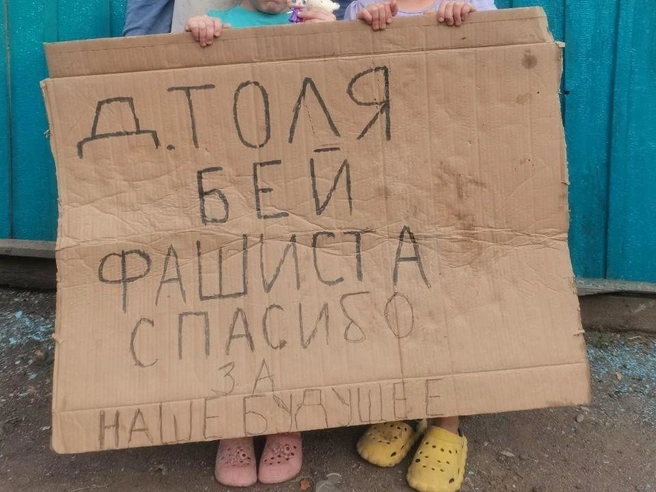 Д.ТОЛЯ
БЕЙ
ФАШИСТА
СПАСИБО
ЗА
НАШЕ БУДУЩЕЕ